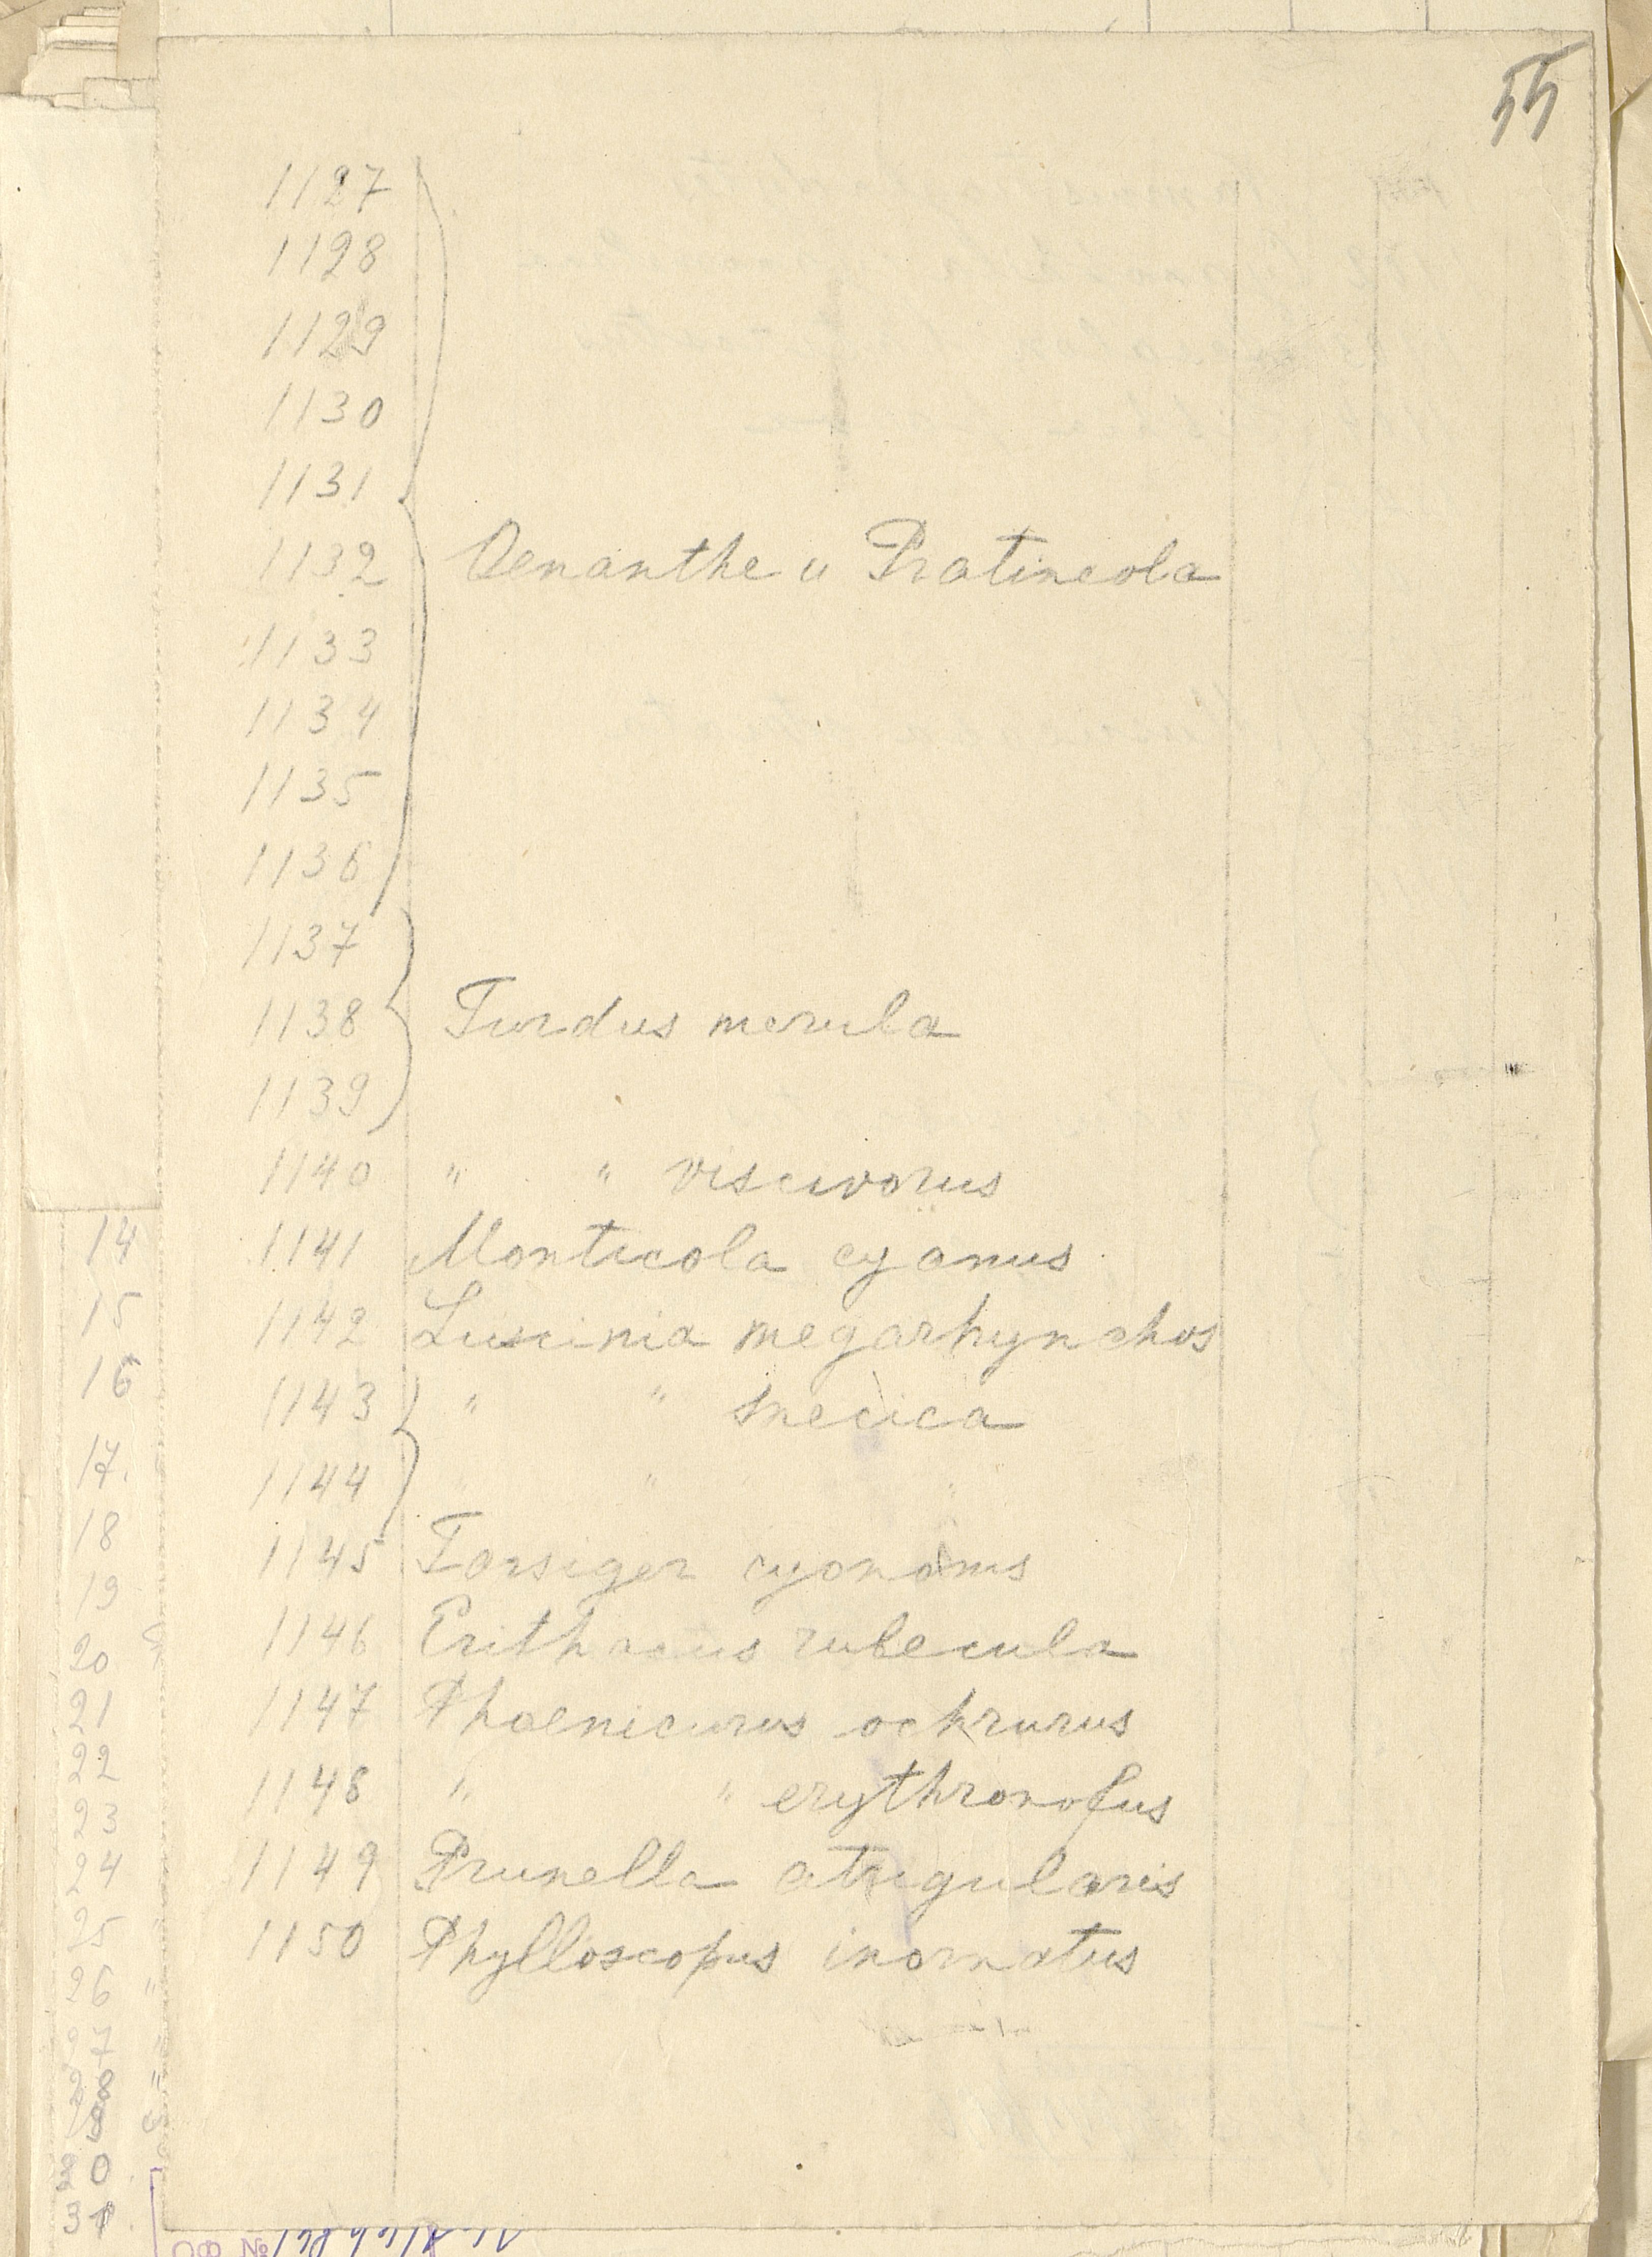 55
1127
1128
1129
1130
1131
1132 Oenanthe и Pratincola
1133
1134
1135
1136
1137
1138 Turdus merula
1139
1140 " " viscivorus
1141 Monticola cyanus
1142 Luscinia megarhynchos
1143 " " svecica
1144 " " "
1145 Tarsiger cyanurus
1146 Erithacus rubecula
1147 Phoenicurus ochrurus
1148 " " erythronotus
1149 Prunella atrigularis
1150 Phylloscopus inornatus
14
15
16
17.
18
19
20
21
22
23
24
25
26
27